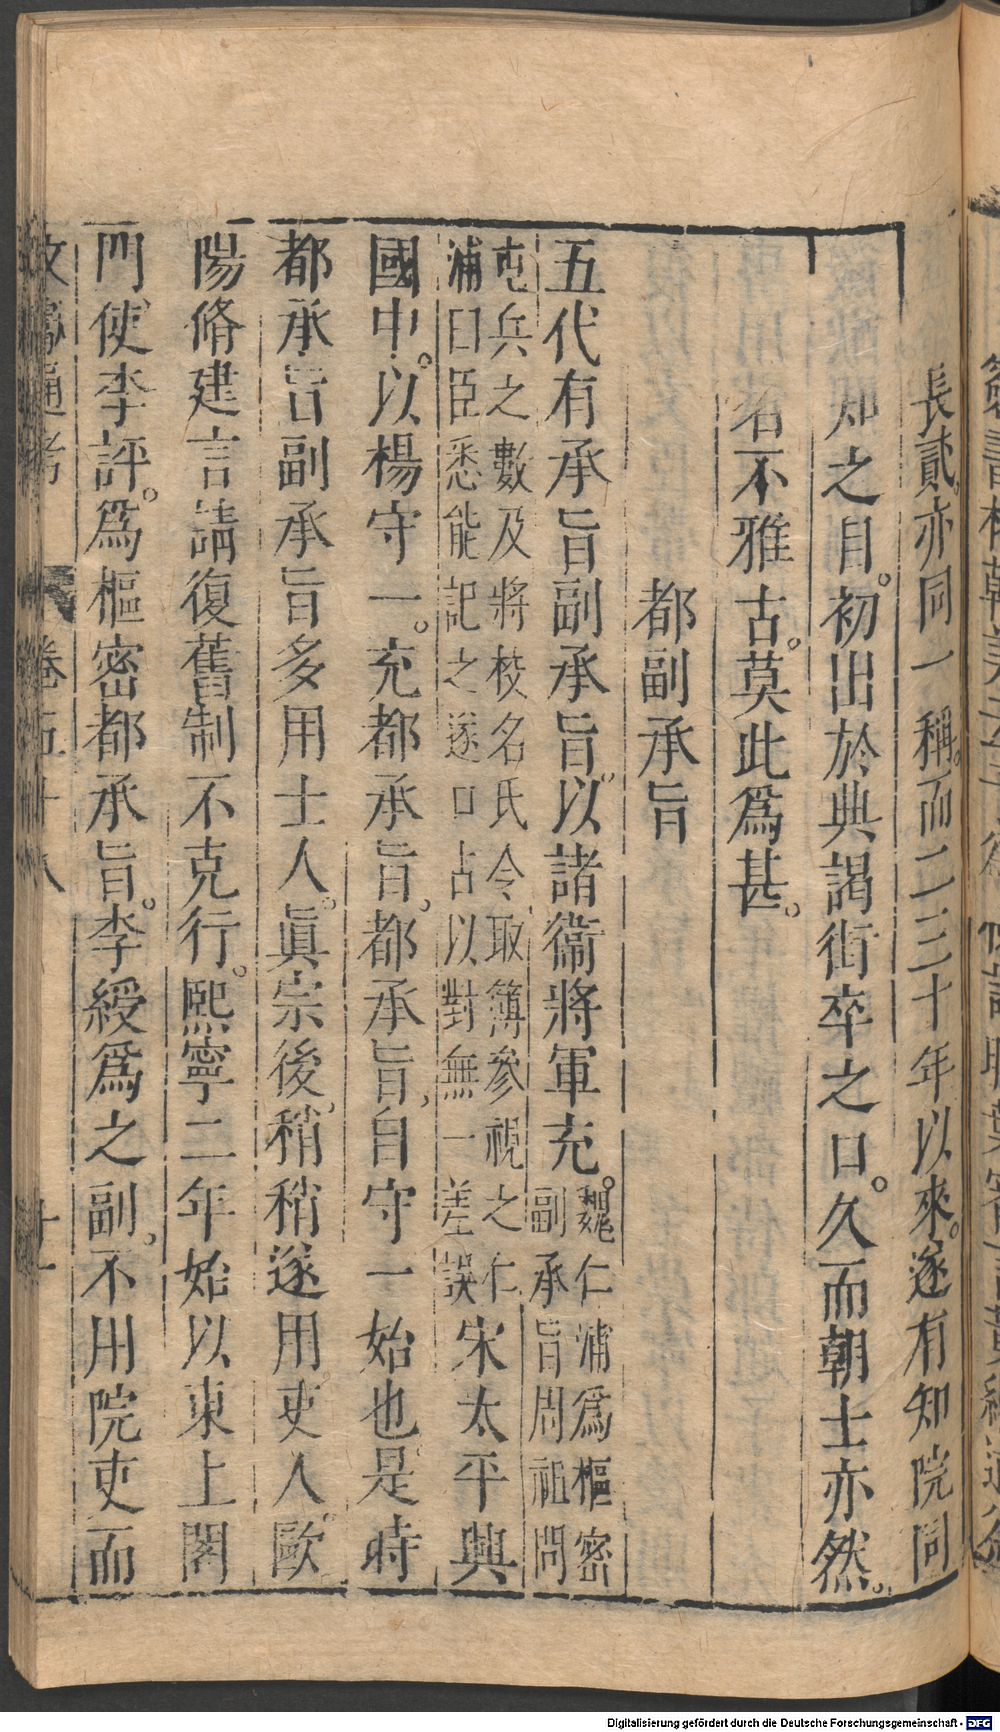 長貳。亦同一稱。而二三十年以來。遂有知院同
知之目。初出於典謁街卒之口。久而朝士亦然。
名不雅古。莫此爲甚。
都副承旨
五代有承旨副承旨。以諸衞將軍充。魏仁浦爲樞密
副承旨周祖問
屯兵之數及將校名氏令取簿參視之仁
浦曰臣悉能記之遂口占以對無一差誤宋太平興
國中。以楊守一。充都承旨。都承旨。自守一始也是時
都承旨副承旨多用士人。眞宗後。稍稍遂用吏人。歐
陽脩建言請復舊制不克行。熙寧二年始以東上閤
門使李評。爲樞密都承旨。李綬爲之副。不用院吏而
文獻通考 卷五十八 廿一
Digitalisierung gefördert durch die Deutsche Forschungsgemeinschaft - DFG